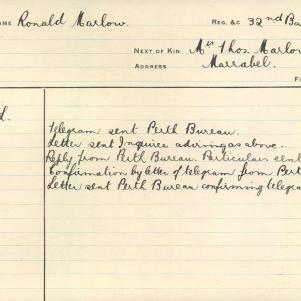 NAME Ronald Marlow. REG. &C 32nd Ba
NEXT OF KIN Mrs Thos. Marlow
ADDRESS Marrabel.
Telegram sent Perth Bureau.
Letter sent Inquirer advising as above.
Reply from Perth Bureau. Particulars sent
Confirmation by letter of telegram from Pert
Letter sent Perth Bureau confirming telegra